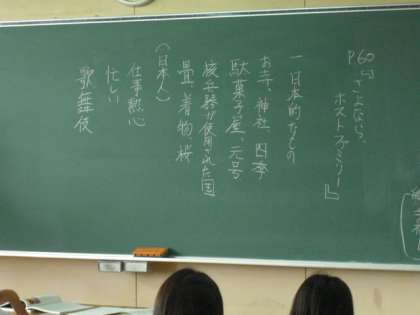 P60 『さよなら、
ホストファミリー』
一 日本的なもの
お寺、神社、四季
駄菓子屋、元号
核兵器が使用された国
畳、着物、桜
(日本人)
仕事熱心
忙しい
歌舞伎